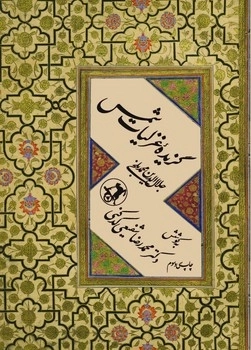 گزیدهٔ غزلیات شمس
جلال‌الدین محمد بلخی
به کوشش
دکتر محمدرضا شفیعی کدکنی
چاپ دوم